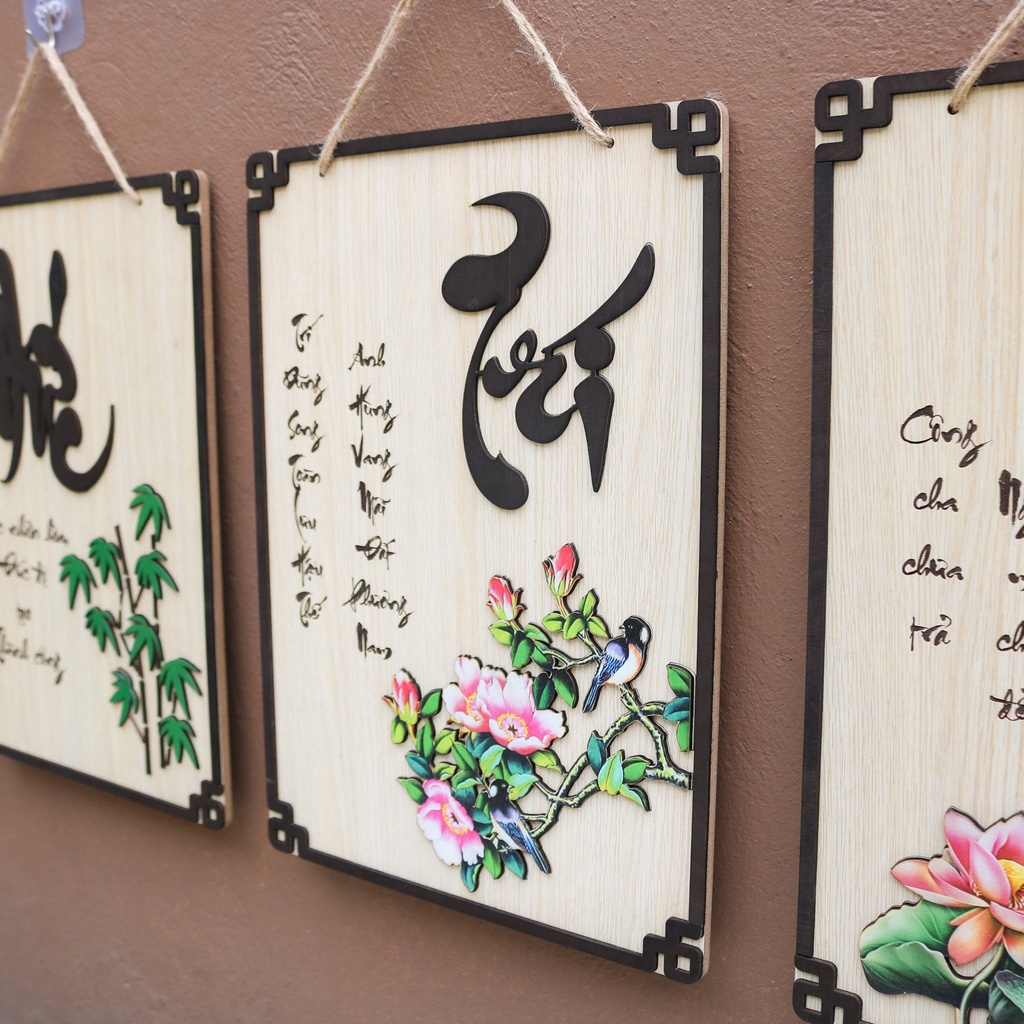 thành công
Trí
Trí Dũng Song Toàn Lưu Hậu Thế
Anh Hùng Vang Mãi Đất Phương Nam
Công cha chưa trả